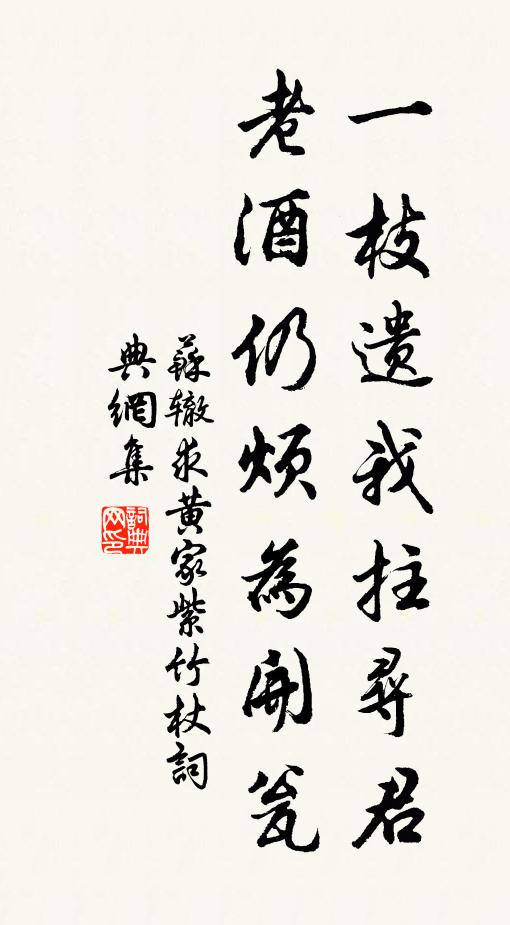 一枝遺我拄尋君
老酒仍煩為開瓮
蘇辙求黄家紫竹杖詞
典網集
詞典网印